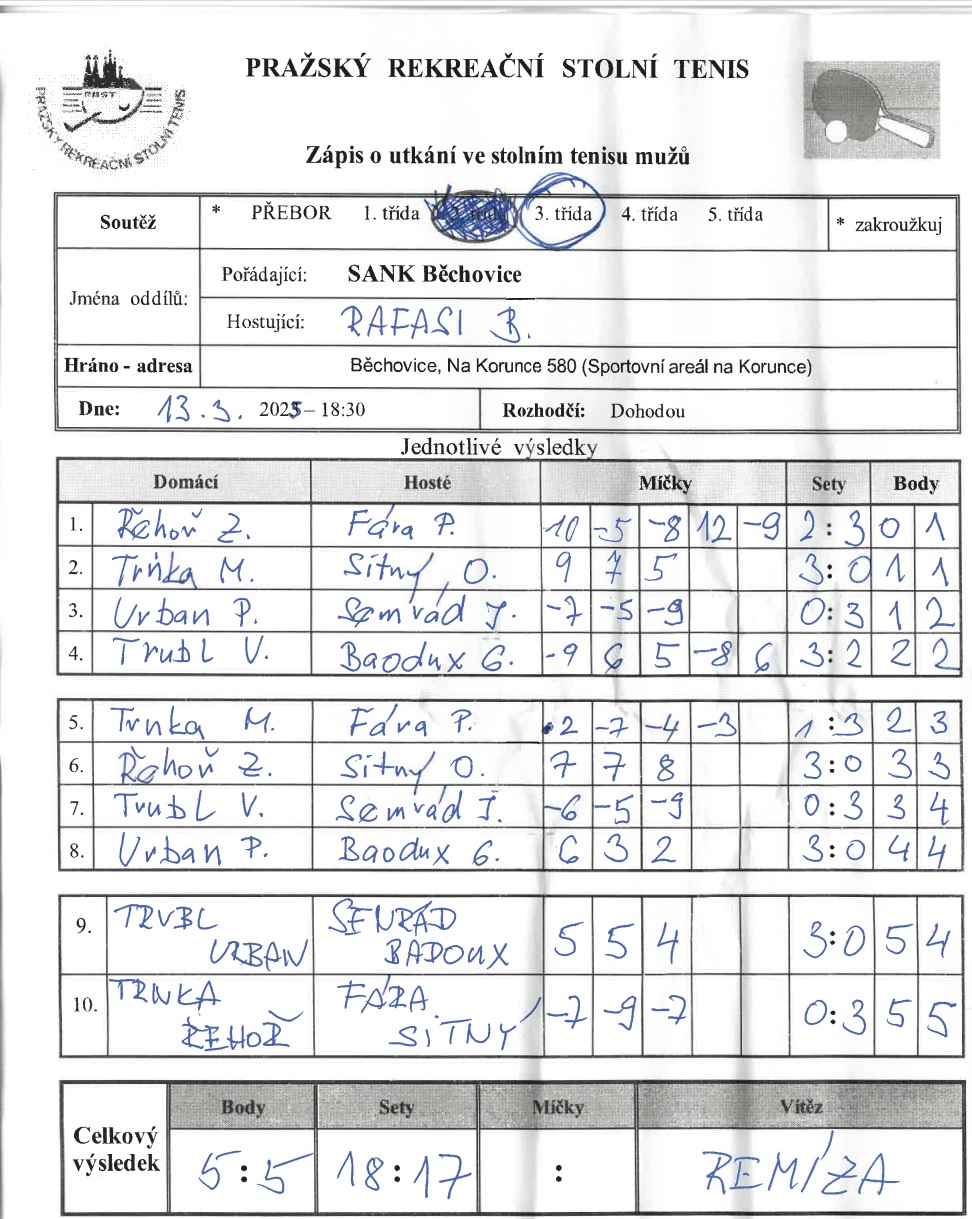 PRAŽSKÝ REKREAČNÍ STOLNÍ TENIS
PRST
PRAŽSKÝ REKREAČNÍ STOLNÍ TENIS
Zápis o utkání ve stolním tenisu mužů
Soutěž * PŘEBOR 1. třída 2. třída 3. třída 4. třída 5. třída * zakroužkuj
Jména oddílů:
Pořádající: SANK Běchovice
Hostující: RAFASI B.
Hráno - adresa Běchovice, Na Korunce 580 (Sportovní areál na Korunce)
Dne: 13.3. 2025 – 18:30 Rozhodčí: Dohodou
Jednotlivé výsledky
Domácí Hosté Míčky Sety Body
1. Řehoř Z. Fára P. 10 -5 -8 12 -9 2:3 0 1
2. Trnka M. Sítny O. 9 7 5 3:0 1 1
3. Urban P. Semrád J. -7 -5 -9 0:3 1 2
4. Trubl V. Baodux G. -9 6 5 -8 6 3:2 2 2
5. Trnka M. Fára P. 2 -7 -4 -3 1:3 2 3
6. Řehoř Z. Sítny O. 7 7 8 3:0 3 3
7. Trubl V. Semrád J. -6 -5 -9 0:3 3 4
8. Urban P. Baodux G. 6 3 2 3:0 4 4
9. TRUBL URBAN SEMRÁD BADOUX 5 5 4 3:0 5 4
10. TRNKA ŘEHOŘ FÁRA SITNÝ -7 -9 -7 0:3 5 5
Body Sety Míčky Vítěz
Celkový výsledek 5:5 18:17 : REMÍZA